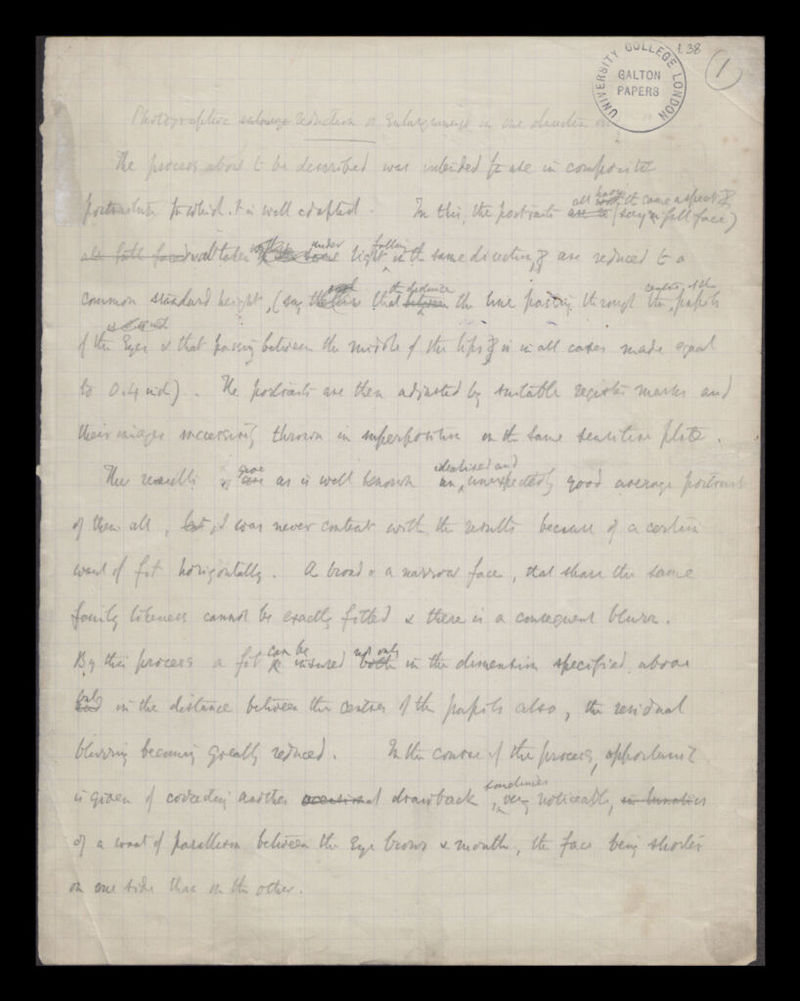 1.38
1
UNIVERSITY COLLEGE LONDON
GALTON
PAPERS
Photographic reduction or Enlargement in one direction only
The process about to be described was intended for use in composite
portraiture for which it is well adapted. In this, the portraits all have the same aspect (say full face)
all full faced taken under light falling in the same direction, & are reduced to a
common standard height, (say that the distance between the line passing through the centres of the pupils
of the Eyes & that passing between the middle of the lips is in all cases made equal
to 0.4 inch). The portraits are then adjusted by suitable register marks and
their images successively thrown in superposition on the same sensitive plate.
The results give as is well known idealised and unexpectedly good average portraits
of them all, but I was never content with the results because of a certain
want of fit horizontally. A broad & a narrow face, that share the same
family likeness cannot be exactly fitted & there is a consequent blurr.
By this process a fit can be insured not only both in the dimension specified above
but in the distance between the centres of the pupils also, the residual
blurring becoming greatly reduced. In the course of the process, opportunity
is given of correcting another occasional drawback, sometimes very noticeable,
of a want of parallelism between the Eye brows & mouth, the face being shorter
on one side than on the other.